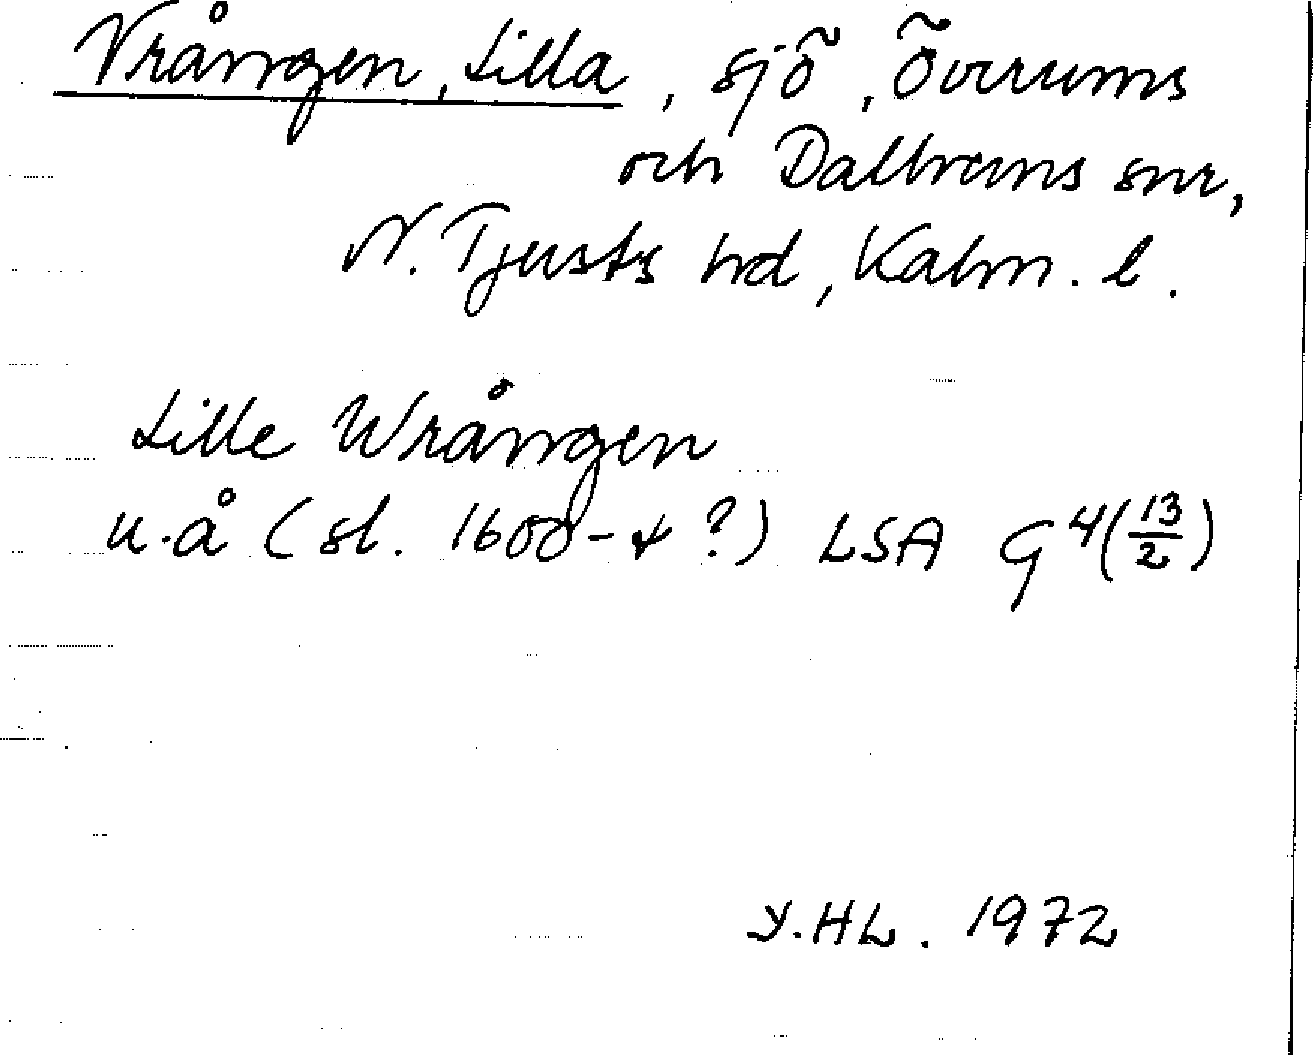 Vrången, Lilla, sjö, Överums
och Dalhems snr,
N. Tjusts hd, Kalm. l.
Lille Wrången
u.å (sl. 1600-t ?) LSA G4(13/2)
Y.HL. 1972